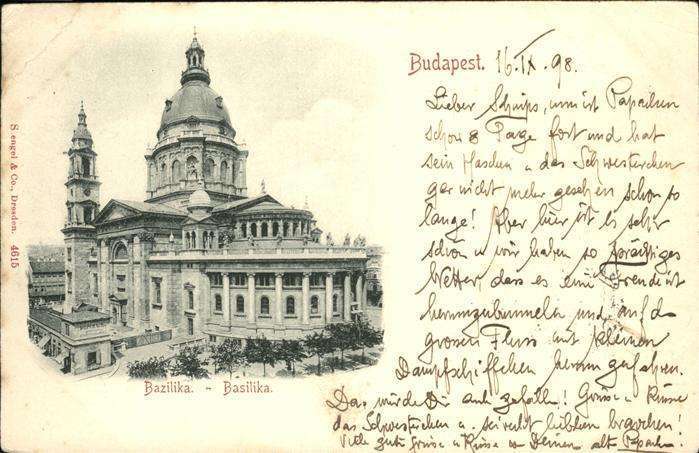 Budapest. 16. IX. 98.
Lieber Schnips, nun ist Papachen
schon 8 Tage fort und hat
sein Haschen u das Schwesterchen
gar nicht mehr gesehen schon so
lange! Aber hier ist es sehr
schön u wir haben so prächtiges
Wetter, dass es eine Freude ist
herumzubummeln und auf d
grossen Fluss mit kleinen
Dampfschiffchen herum zu fahren.
Das würde Dir auch gefallen! Grüsse u Küsse
das Schwesterchen u. sei recht lieb
Viele gute Grüsse u Küsse von Deinem alt Papachen!
Bazilika. - Basilika.
Stengel & Co., Dresden. 4615